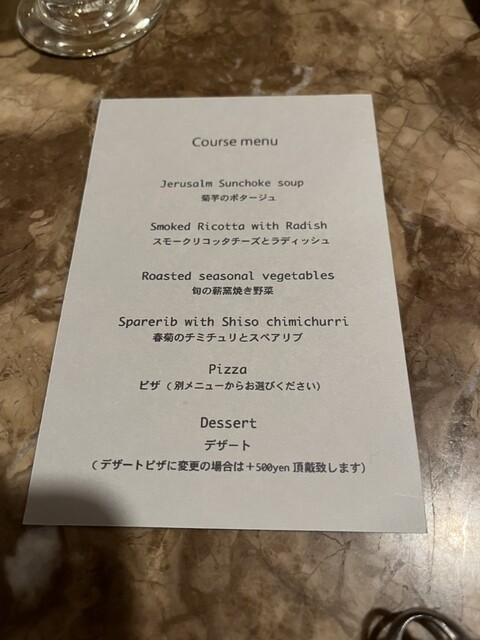 Course menu
Jerusalm Sunchoke soup
菊芋のポタージュ
Smoked Ricotta with Radish
スモークリコッタチーズとラディッシュ
Roasted seasonal vegetables
旬の薪窯焼き野菜
Sparerib with Shiso chimichurri
春菊のチミチュリとスペアリブ
Pizza
ピザ（別メニューからお選びください）
Dessert
デザート
（デザートピザに変更の場合は＋500yen 頂戴致します）